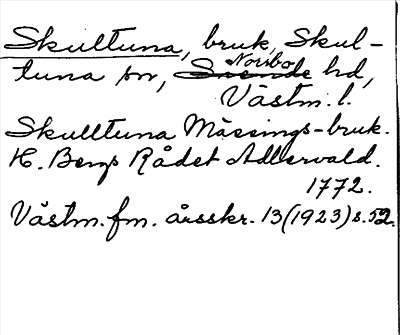 Skultuna, bruk, Skul-
tuna sn, Norrbo hd,
Västm. l.
Skulltuna Mässings-bruk.
H. Bergs Rådet Adlervald.
1772.
Västm. fm. årsskr. 13 (1923) s. 52.